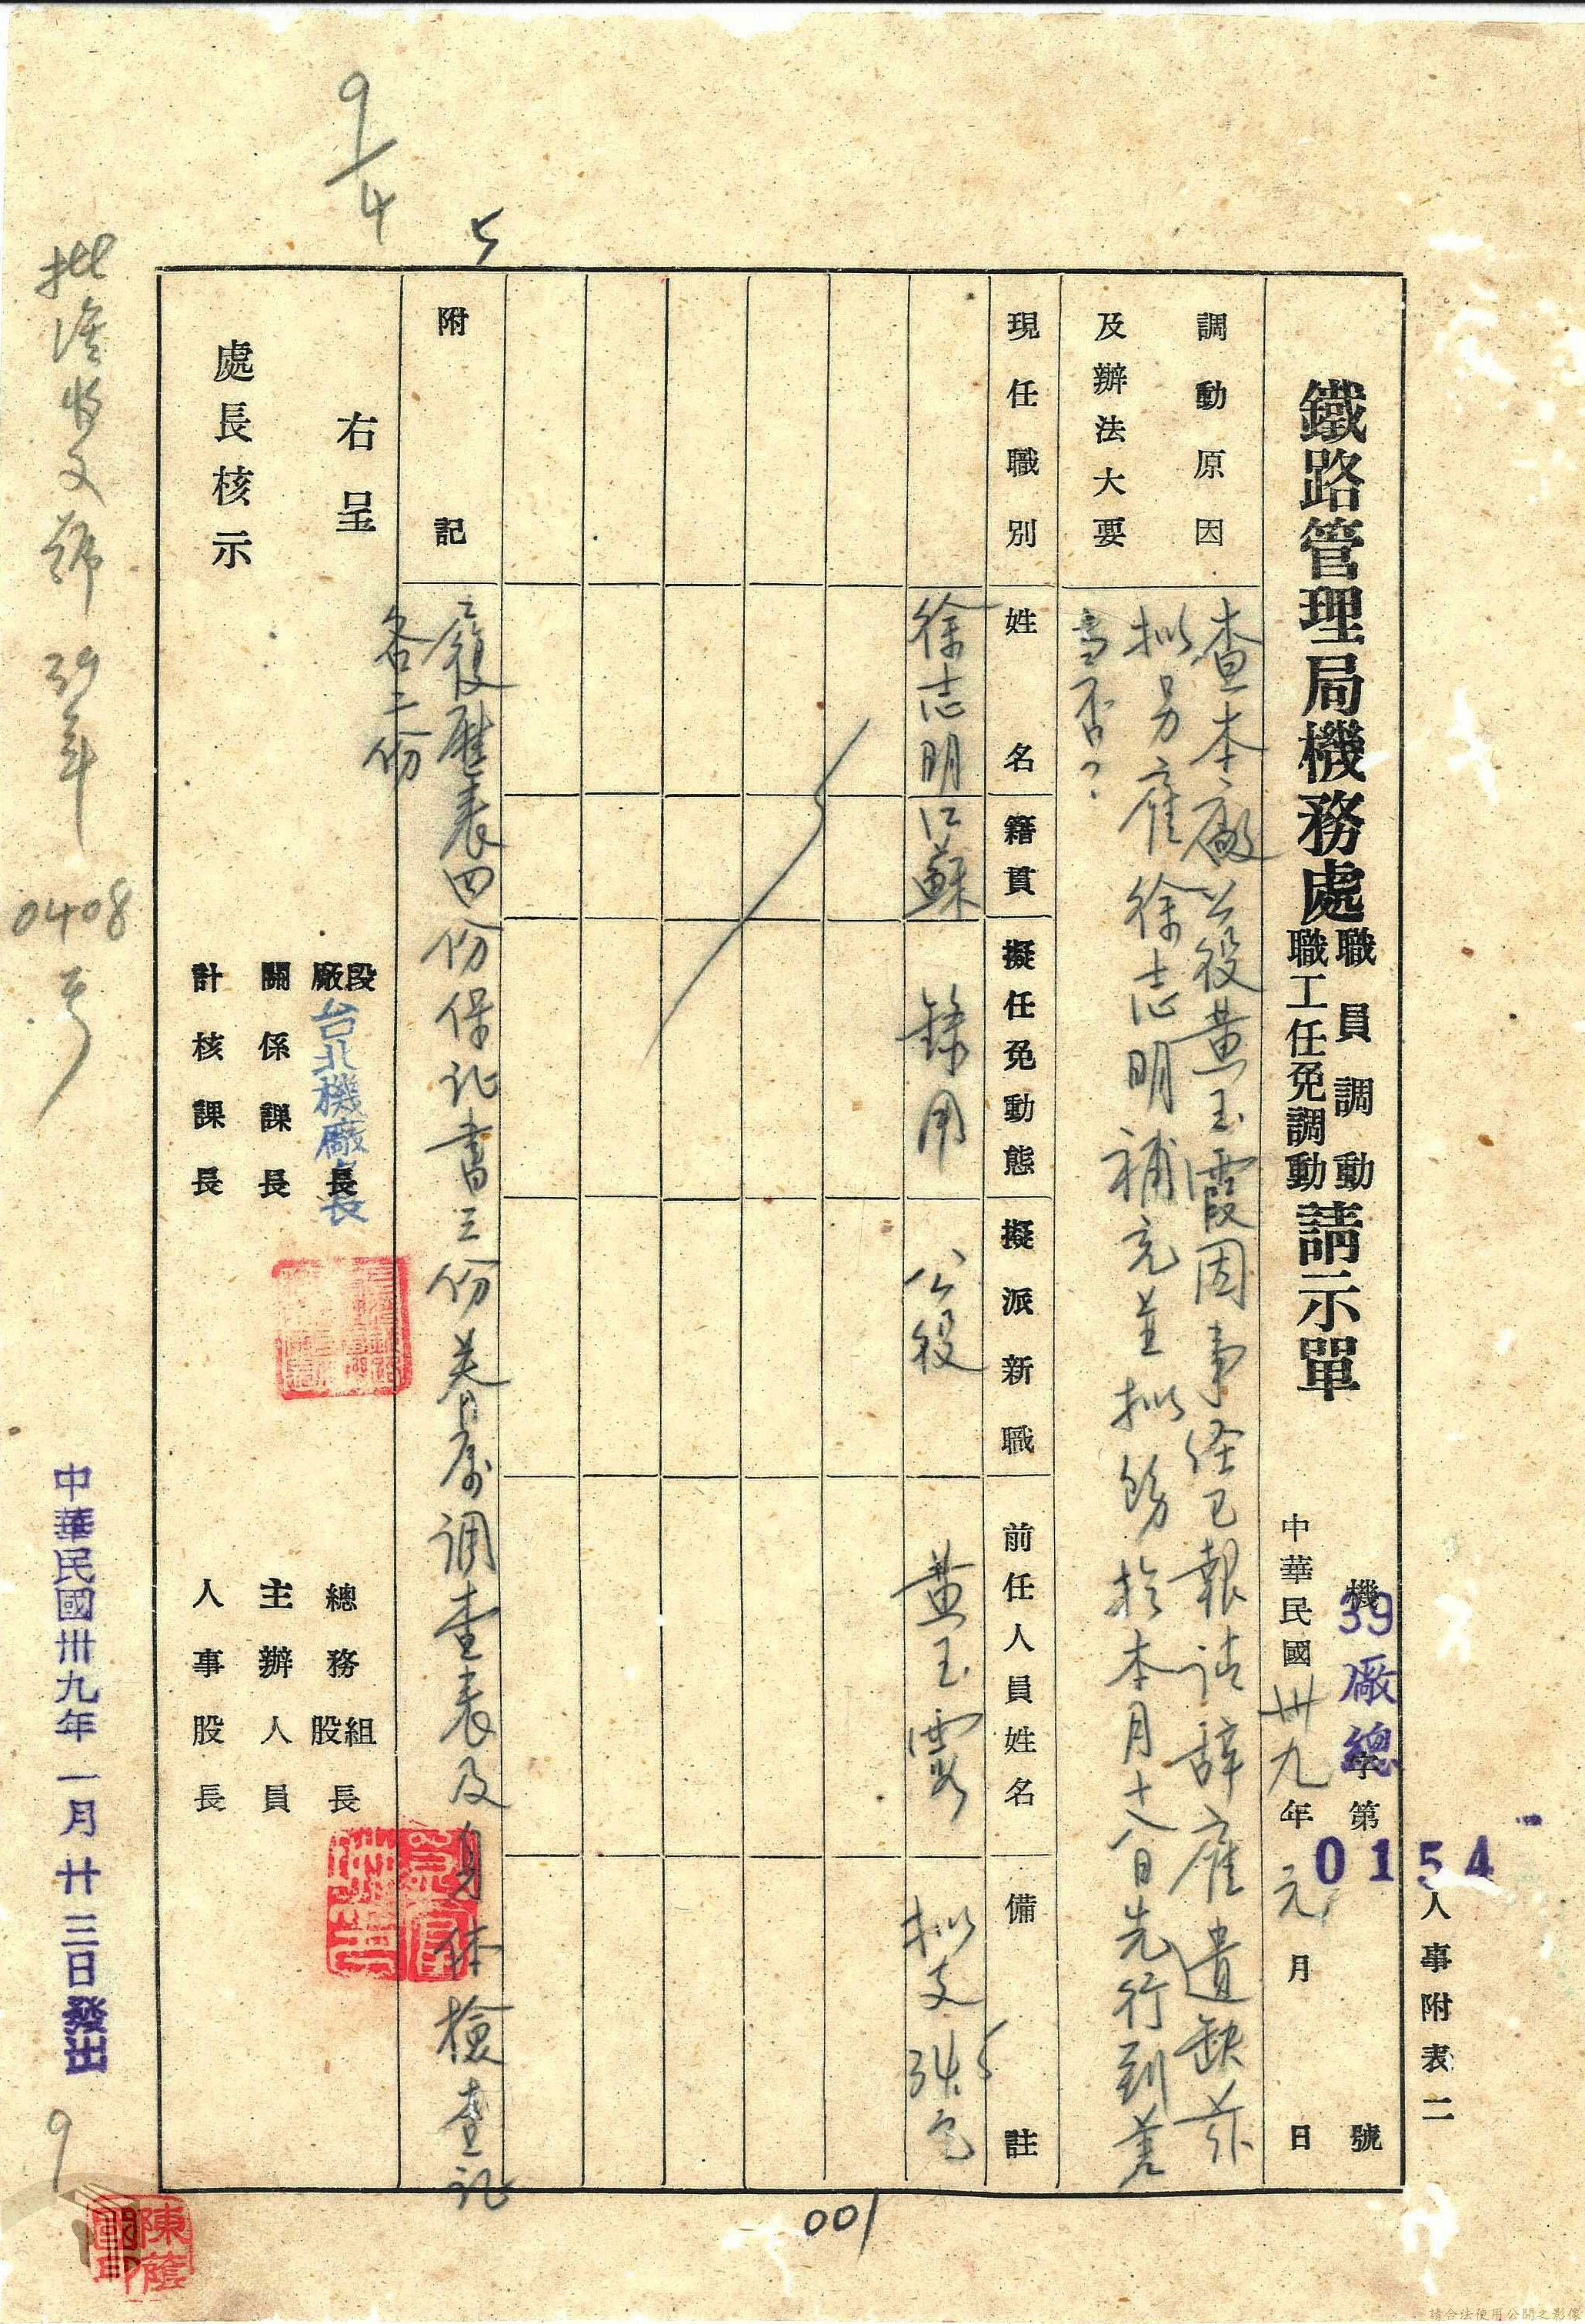 人事附表二
鐵路管理局機務處職員調動職工任免調動請示單
機39廠總字第0154號
中華民國卅九年元月 日
調動原因及辦法大要
查本廠公役黃玉霞因事經已報請辞雇遺缺茲
拟另雇徐志明補充並拟飭於本月十八日先行到差
當否？
現任職別 姓名 籍貫 擬任免動態 擬派新職 前任人員姓名 備註
徐志明 江蘇 錄用 公役 黃玉霞 拟支34.5元
附記
履歷表四份保証書三份眷属調查表及身体檢查証
各二份
右呈
段廠長 台北機廠長 總務組股長
關係課長 主辦人員
處長核示
計核課長 人事股長
9/4
5
批澹收文號39年0408号
中華民國卅九年一月廿三日發出
9
001
請合法使用公開之影像